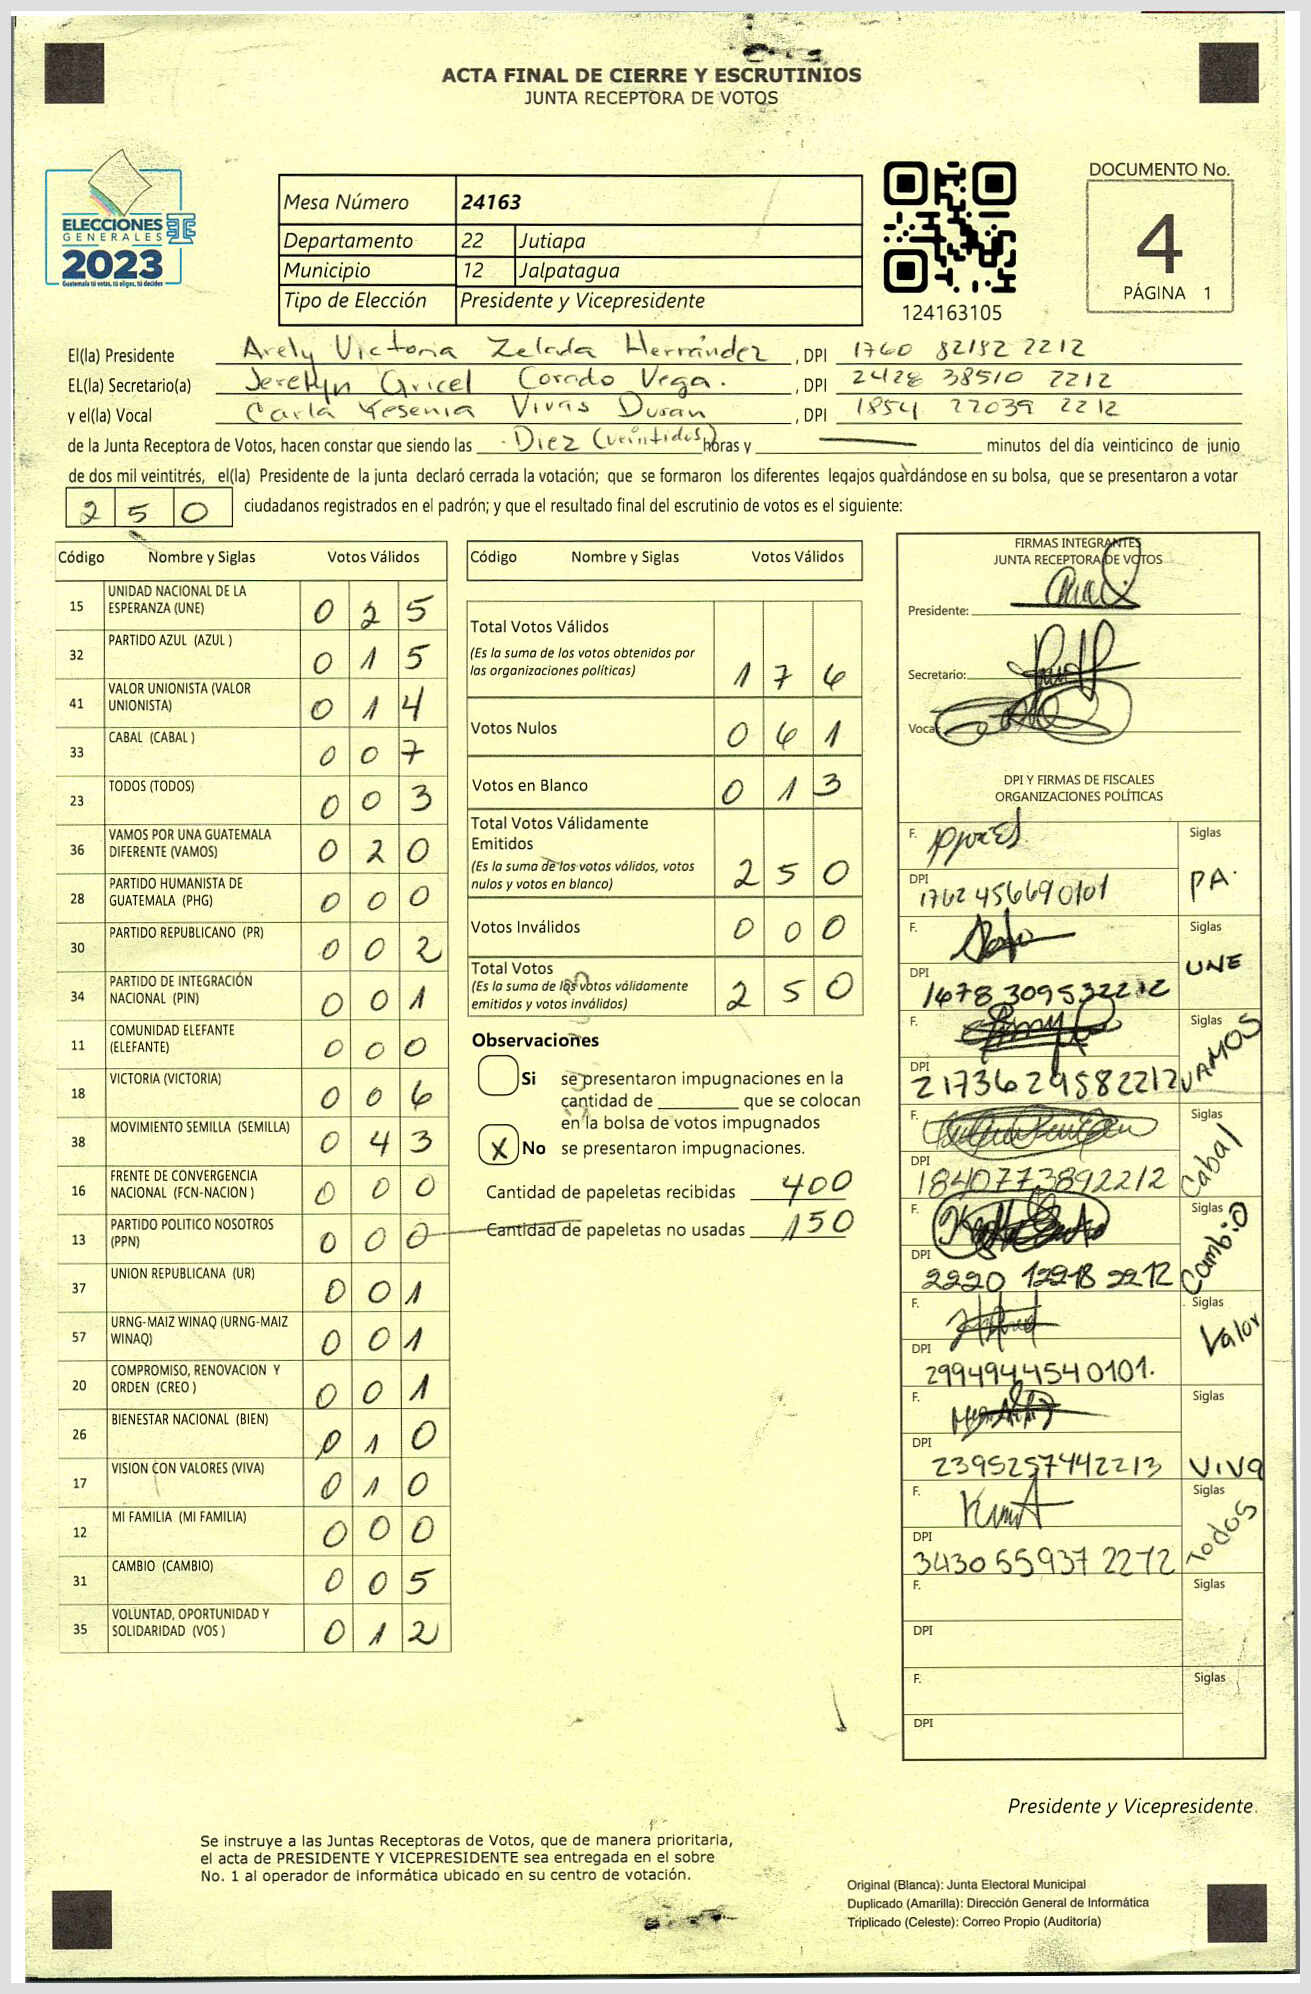 ACTA FINAL DE CIERRE Y ESCRUTINIOS
JUNTA RECEPTORA DE VOTOS
ELECCIONES
GENERALES
2023
Guatemala tú votas, tú eliges, tú decides
Mesa Número 24163
Departamento 22 Jutiapa
Municipio 12 Jalpatagua
Tipo de Elección Presidente y Vicepresidente
124163105
DOCUMENTO No.
4
PÁGINA 1
El(la) Presidente Arely Victoria Zelada Hernández , DPI 1760 82182 2212
EL(la) Secretario(a) Jerelyn Gricel Corado Vega. , DPI 2428 38510 2212
y el(la) Vocal Carla Yesenia Vivas Duran , DPI 1854 27039 2212
de la Junta Receptora de Votos, hacen constar que siendo las Diez (veintidos) horas y ——— minutos del día veinticinco de junio
de dos mil veintitrés, el(la) Presidente de la junta declaró cerrada la votación; que se formaron los diferentes legajos guardándose en su bolsa, que se presentaron a votar
250 ciudadanos registrados en el padrón; y que el resultado final del escrutinio de votos es el siguiente:
Código Nombre y Siglas Votos Válidos
15 UNIDAD NACIONAL DE LA ESPERANZA (UNE) 025
32 PARTIDO AZUL (AZUL ) 015
41 VALOR UNIONISTA (VALOR UNIONISTA) 014
33 CABAL (CABAL ) 007
23 TODOS (TODOS) 003
36 VAMOS POR UNA GUATEMALA DIFERENTE (VAMOS) 020
28 PARTIDO HUMANISTA DE GUATEMALA (PHG) 000
30 PARTIDO REPUBLICANO (PR) 002
34 PARTIDO DE INTEGRACIÓN NACIONAL (PIN) 001
11 COMUNIDAD ELEFANTE (ELEFANTE) 000
18 VICTORIA (VICTORIA) 006
38 MOVIMIENTO SEMILLA (SEMILLA) 043
16 FRENTE DE CONVERGENCIA NACIONAL (FCN-NACION ) 000
13 PARTIDO POLITICO NOSOTROS (PPN) 000
37 UNION REPUBLICANA (UR) 001
57 URNG-MAIZ WINAQ (URNG-MAIZ WINAQ) 001
20 COMPROMISO, RENOVACION Y ORDEN (CREO ) 001
26 BIENESTAR NACIONAL (BIEN) 010
17 VISION CON VALORES (VIVA) 010
12 MI FAMILIA (MI FAMILIA) 000
31 CAMBIO (CAMBIO) 005
35 VOLUNTAD, OPORTUNIDAD Y SOLIDARIDAD (VOS ) 012
Código Nombre y Siglas Votos Válidos
Total Votos Válidos
(Es la suma de los votos obtenidos por las organizaciones políticas) 176
Votos Nulos 061
Votos en Blanco 013
Total Votos Válidamente Emitidos
(Es la suma de los votos válidos, votos nulos y votos en blanco) 250
Votos Inválidos 000
Total Votos
(Es la suma de los votos válidamente emitidos y votos inválidos) 250
Observaciones
Si se presentaron impugnaciones en la
cantidad de ________ que se colocan
en la bolsa de votos impugnados
X No se presentaron impugnaciones.
Cantidad de papeletas recibidas 400
Cantidad de papeletas no usadas 150
FIRMAS INTEGRANTES
JUNTA RECEPTORA DE VOTOS
Presidente:
Secretario:
Vocal
DPI Y FIRMAS DE FISCALES
ORGANIZACIONES POLÍTICAS
F. Siglas
DPI 1762 45669 0101 PA.
F. Siglas
DPI 1678 30953 2212 UNE
F. Siglas
DPI 2173629582212 VAMOS
F. Siglas
DPI 1840773892212 Cabal
F. Siglas
DPI 2220 12218 2212 Cambio
F. Siglas
DPI 2994944540101. Valor
F. Siglas
DPI 2395257442213 VIVA
F. Siglas
DPI 3430 55937 2212 Todos
F. Siglas
DPI
F. Siglas
DPI
Presidente y Vicepresidente.
Se instruye a las Juntas Receptoras de Votos, que de manera prioritaria,
el acta de PRESIDENTE Y VICEPRESIDENTE sea entregada en el sobre
No. 1 al operador de informática ubicado en su centro de votación.
Original (Blanca): Junta Electoral Municipal
Duplicado (Amarilla): Dirección General de Informática
Triplicado (Celeste): Correo Propio (Auditoría)